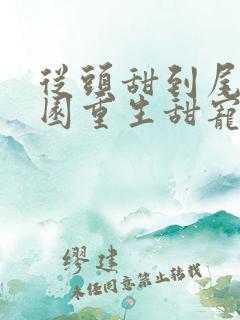 從頭甜到尾
園重生甜寵
繆建
未任同意禁止转载